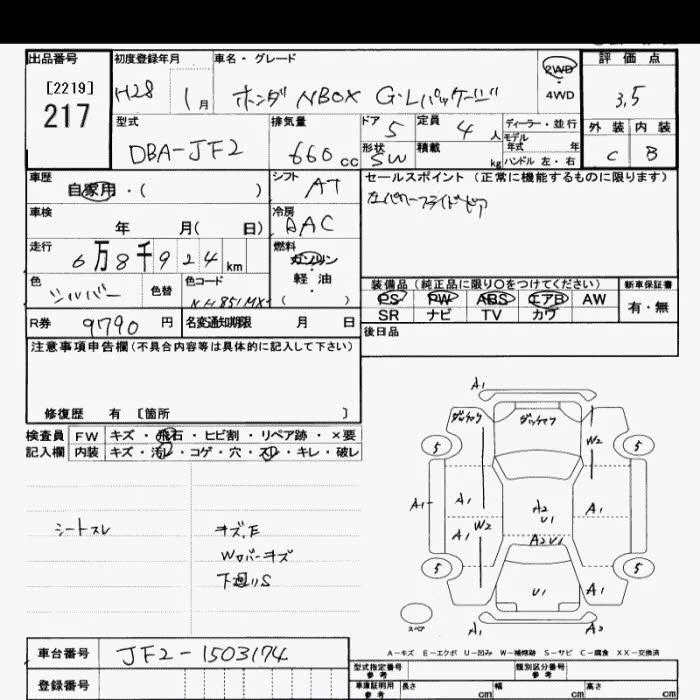 出品番号 初度登録年月 車名・グレード 評価点
[2219]
217
H28 1月 ホンダ NBOX G・Lパッケージ 2WD 4WD 3.5
型式 排気量 ドア 定員 ディーラー・並行 外装 内装
DBA-JF2 660cc 5 4人 モデル年式 年 C B
形状 SW 積載 kg ハンドル 左・右
車歴 シフト セールスポイント(正常に機能するものに限ります)
自家用・( ) AT
車検 冷房
年 月( 日) AAC
走行 燃料
6万8千924km ガソリン・軽油・( )
色 色替 色コード 装備品(純正品に限り○をつけてください) 新車保証書
シルバー PS PW ABS エアB AW 有・無
SR ナビ TV カワ
R券 9790円 名変通知期限 月 日 後日品
注意事項申告欄(不具合内容等は具体的に記入して下さい)
修復歴 有 [箇所 ]
検査員 FW キズ・飛石・ヒビ割・リペア跡・×要
記入欄 内装 キズ・汚レ・コゲ・穴・スレ・キレ・破レ
シートスレ キズ.E
Wカバーキズ
下廻りS
A1
5 W2 5
A1 A1 A2 U1 A1
A1 W2 A2 U1
5 U1 A1 5
スペア A1 A2
A-キズ E-エクボ U-凹み W-補修跡 S-サビ C-腐食 XX-交換済
車台番号 JF2-1503174
登録番号
型式指定番号 参考 類別区分番号 参考
車庫証明用 参考 長さ cm 幅 cm 高さ cm